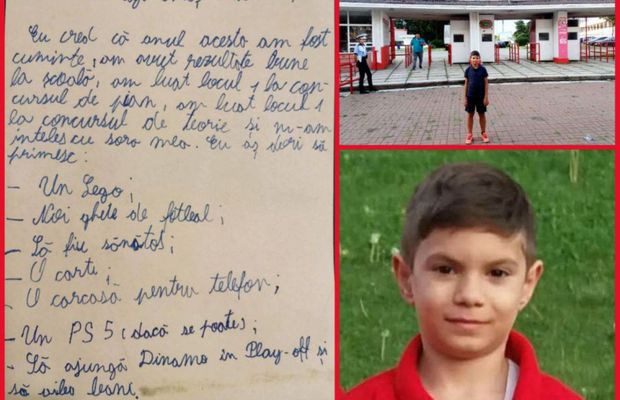 Eu cred că anul acesta am fost
cuminte, am avut rezultate bune
la școală, am luat locul 1 la con-
cursul de pian, am luat locul 1
la concursul de teorie si m-am
inteles cu sora mea. Eu aș dori să
primesc:
- Un Lego;
- Noi ghete de fotbal;
- Să fiu sănătos;
- O carte;
- O carcasă pentru telefon;
- Un PS 5 (dacă se poate);
- Să ajungă Dinamo in Play-off și
să aibo banc.